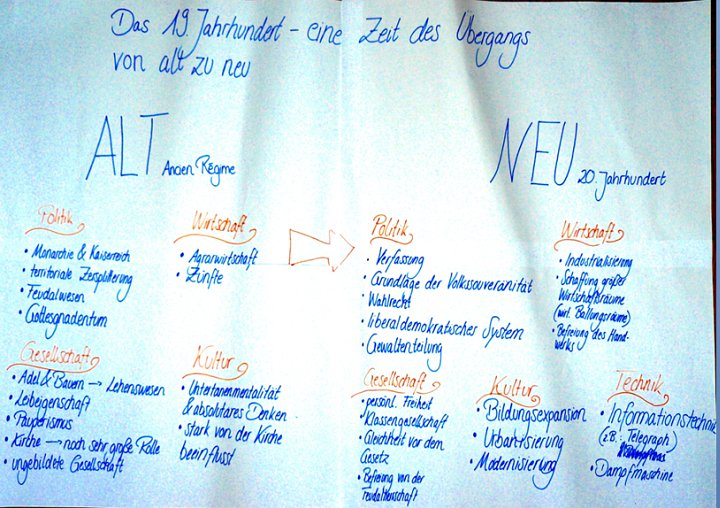 Das 19. Jahrhundert - eine Zeit des Übergangs
von alt zu neu
ALT Ancien Régime
Politik
• Monarchie & Kaiserreich
• territoriale Zersplitterung
• Feudalwesen
• Gottesgnadentum
Wirtschaft
• Agrarwirtschaft
• Zünfte
Gesellschaft
• Adel & Bauern → Lehenswesen
• Leibeigenschaft
• Pauperismus
• Kirche → noch sehr große Rolle
• ungebildete Gesellschaft
Kultur
• Untertanenmentalität
& absolutäres Denken
• stark von der Kirche
beeinflusst
NEU 20. Jahrhundert
Politik
• Verfassung
• Grundlage der Volkssouveränität
• Wahlrecht
• liberaldemokratischer System
• Gewaltenteilung
Wirtschaft
• Industrialisierung
• Schaffung großer
Wirtschaftsräume
(wirt. Ballungsräume)
• Befreiung des Hand-
werks
Gesellschaft
• persönl. Freiheit
• Klassengesellschaft
• Gleichheit vor dem
Gesetz
• Befreiung von der
Feudalherrschaft
Kultur
• Bildungsexpansion
• Urbanisierung
• Modernisierung
Technik
• Informationstechnik
(z.B.: Telegraph)
• Dampfmaschine